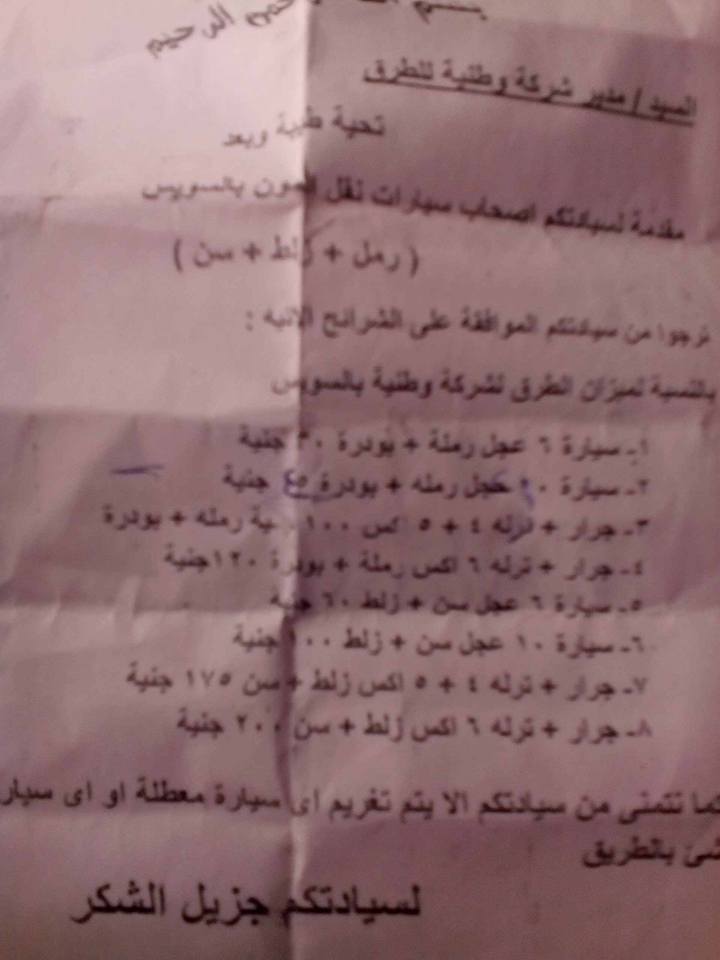 بسم الله الرحمن الرحيم
السيد / مدير شركة وطنية للطرق
تحية طيبة وبعد
مقدمة لسيادتكم اصحاب سيارات نقل المون بالسويس
( رمل + زلط + سن )
نرجوا من سيادتكم الموافقة على الشرائح الاتيه :
بالنسبة لميزان الطرق لشركة وطنية بالسويس
١- سيارة ٦ عجل رملة + بودرة ٣٠ جنية
٢- سيارة ١٠ عجل رمله + بودرة ٤٥ جنية
٣- جرار + ترله ٤ + ٥ اكس ١٠٠ جنية رمله + بودرة
٤- جرار + ترله ٦ اكس رملة + بودرة ١٢٠ جنية
٥- سيارة ٦ عجل سن + زلط ٦٠ جنية
٦- سيارة ١٠ عجل سن + زلط ١٠٠ جنية
٧- جرار + ترله ٤ + ٥ اكس زلط + سن ١٧٥ جنية
٨- جرار + ترله ٦ اكس زلط + سن ٢٠٠ جنية
نتمنى من سيادتكم الا يتم تغريم اى سيارة معطلة او اى
بالطريق
لسيادتكم جزيل الشكر